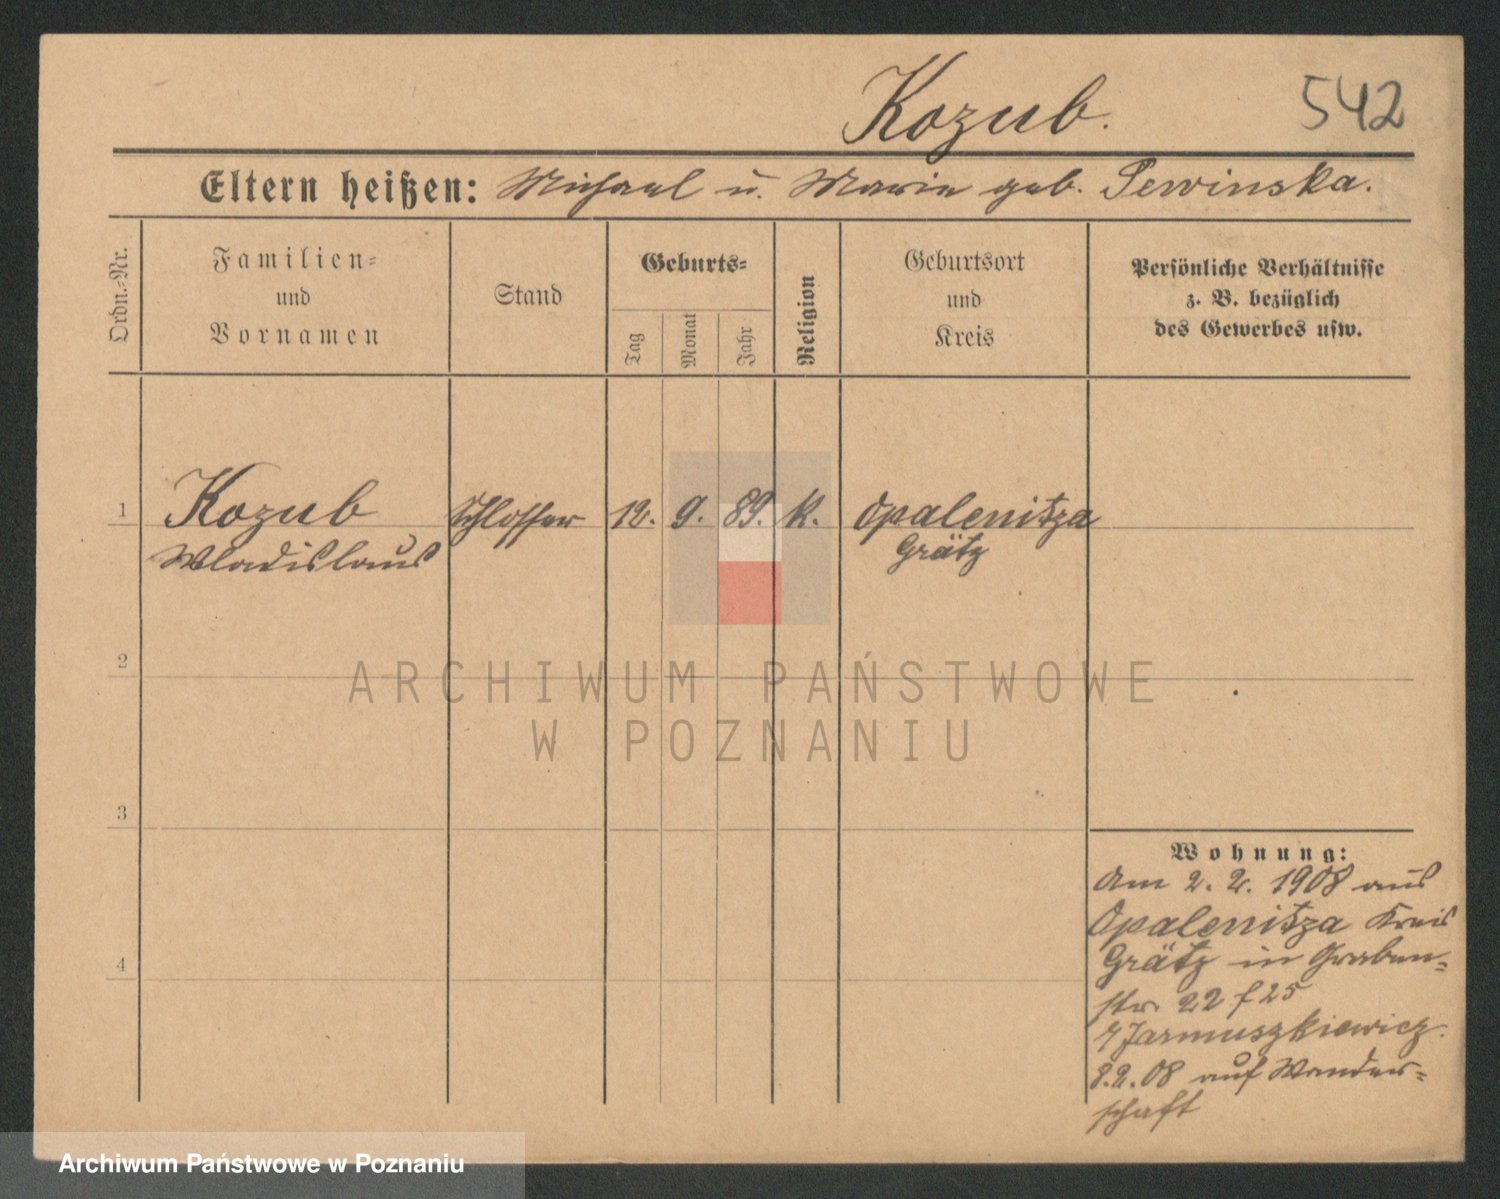 Kozub.
542
Eltern heißen: Michael u. Marie geb. Pewinska.
Ordn.-Nr.
Familien-
und
Vornamen
Stand
Geburts-
Tag
Monat
Jahr
Religion
Geburtsort
und
Kreis
Persönliche Verhältnisse
z. B. bezüglich
des Gewerbes usw.
1
Kozub
Wladislaus
Schlosser
12.
9.
89.
k.
Opalenitza
Grätz
2
ARCHIWUM PAŃSTWOWE
W POZNANIU
3
4
Wohnung:
Am 2. 2. 1908 aus
Opalenitza Kreis
Grätz in Graben-
str. 22 f 25
Jarmuszkiewicz.
8.2.08 auf Wander-
schaft
Archiwum Państwowe w Poznaniu